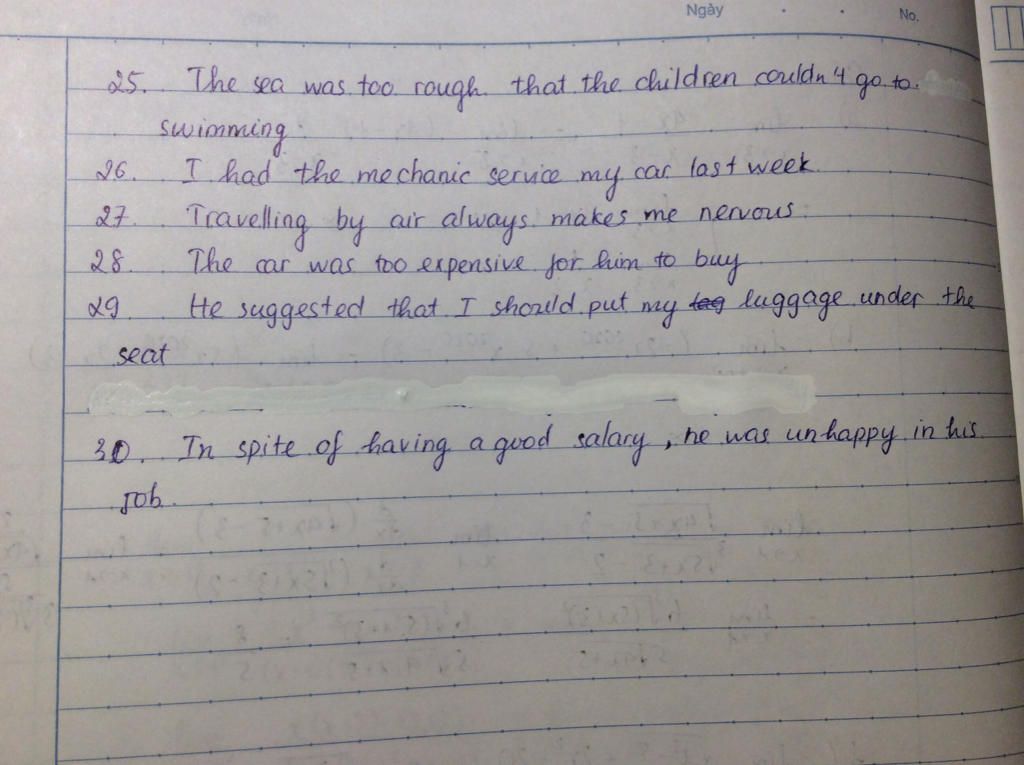 Ngày
No.
25. The sea was too rough that the children couldn't go to
swimming
26. I had the mechanic service my car last week.
27. Travelling by air always makes me nervous
28. The car was too expensive for him to buy
29 He suggested that I should put my luggage under the
seat
30. In spite of having a good salary, he was unhappy in his
job.